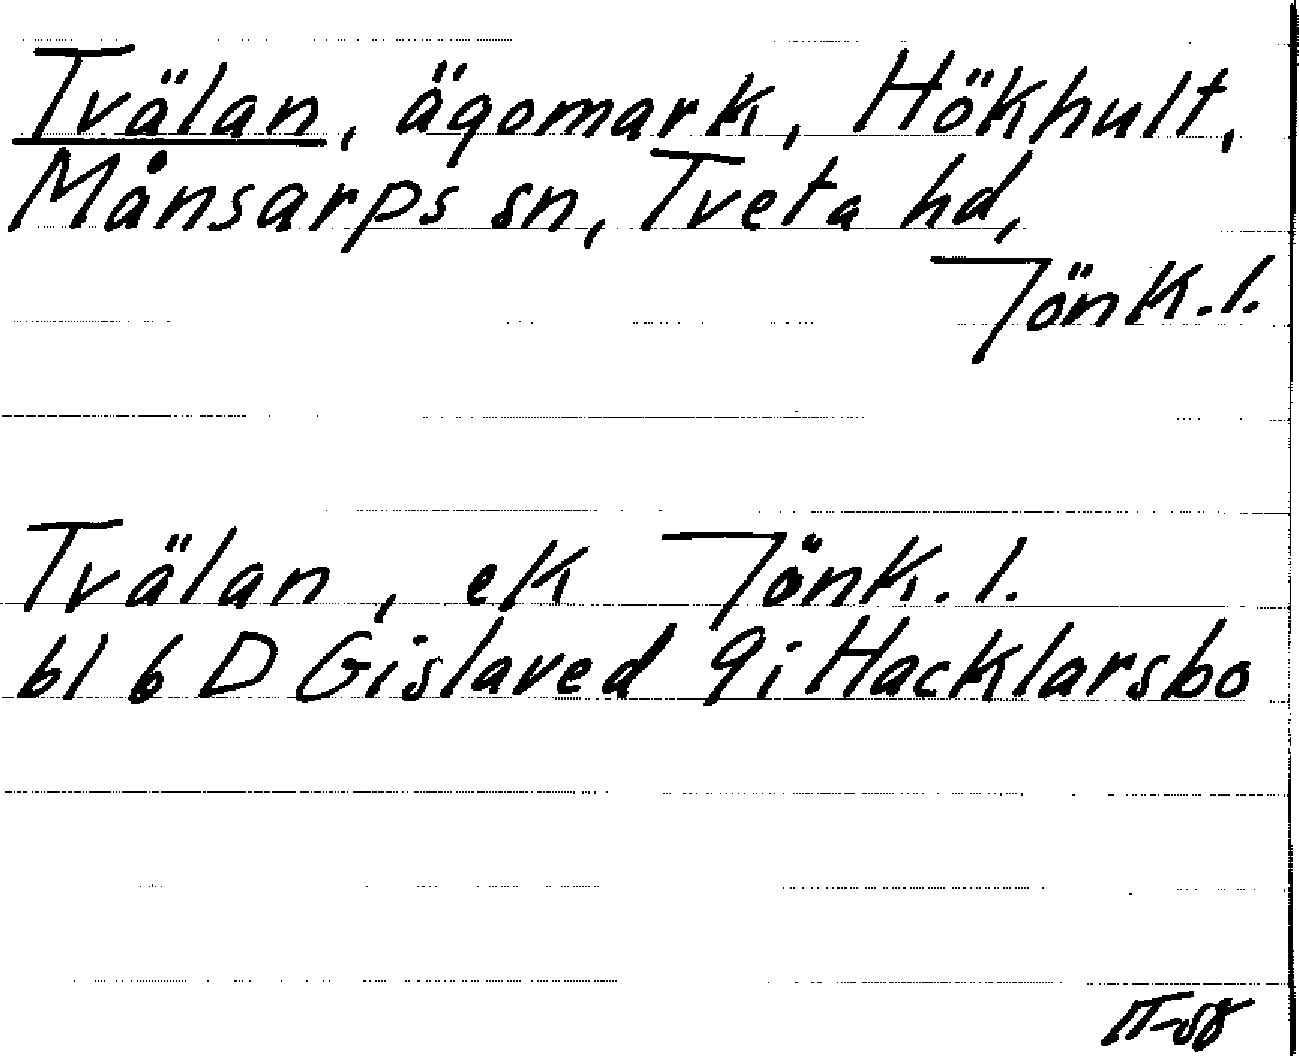 Tvälan, ägomark, Hökhult,
Månsarps sn, Tveta hd,
Jönk.l.
Tvälan, ek Jönk.l.
bl 6 D Gislaved 9i Hacklarsbo